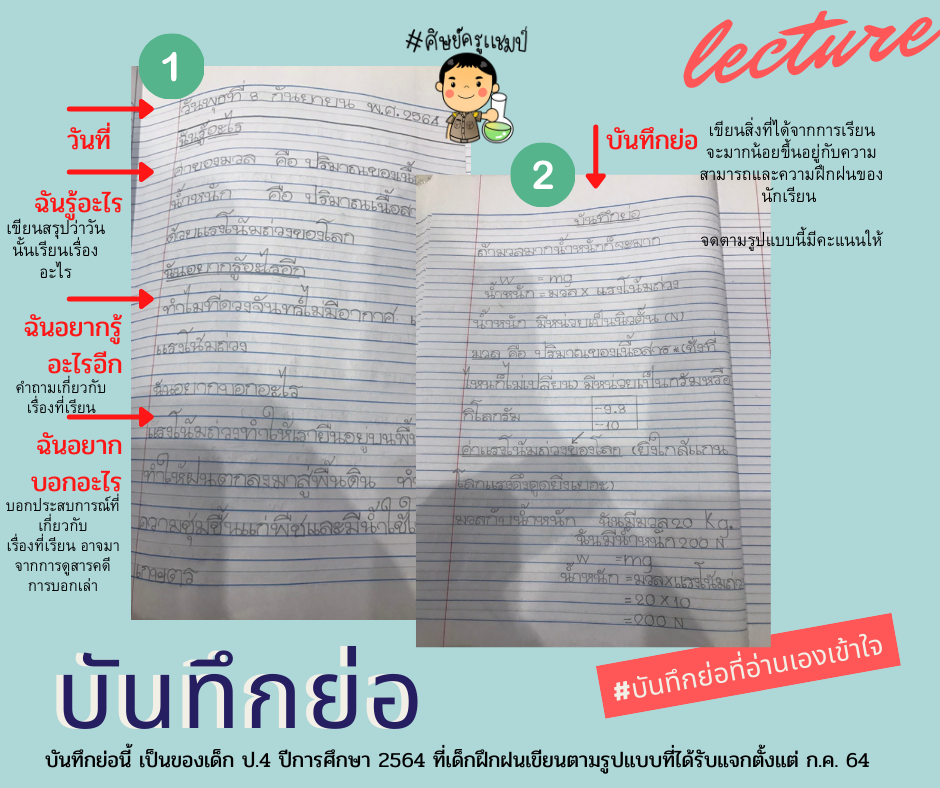 #ศิษย์ครูแชมป์
lecture
1
วันที่
ฉันรู้อะไร
เขียนสรุปว่าวัน
นั้นเรียนเรื่อง
อะไร
ฉันอยากรู้
อะไรอีก
คำถามเกี่ยวกับ
เรื่องที่เรียน
ฉันอยาก
บอกอะไร
บอกประสบการณ์ที่
เกี่ยวกับ
เรื่องที่เรียน อาจมา
จากการดูสารคดี
การบอกเล่า
วันพุธที่ 8 กันยายน พ.ศ. 2564
ฉันรู้อะไร
ค่าของมวล คือ ปริมาณของเนื้อ
น้ำหนัก คือ ปริมาณเนื้อสา
ด้วยแรงโน้มถ่วงของโลก
ฉันอยากรู้อะไรอีก
ทำไมที่ดวงจันทร์ไม่มีอากาศ
แรงโน้มถ่วง
ฉันอยากบอกอะไร
แรงโน้มถ่วงทำให้เรายืนอยู่บนพื้น
ทำให้ฝนตกลงมาสู่พื้นดิน
ความชุ่มชื้นแก่พืชและมีน้ำใช้
เกษตร
2
บันทึกย่อ
เขียนสิ่งที่ได้จากการเรียน
จะมากน้อยขึ้นอยู่กับความ
สามารถและความฝึกฝนของ
นักเรียน
จดตามรูปแบบนี้มีคะแนนให้
บันทึกย่อ
ถ้ามวลมากน้ำหนักก็จะมาก
W = mg
น้ำหนัก = มวล x แรงโน้มถ่วง
น้ำหนัก มีหน่วยเป็นนิวตัน (N)
มวล คือ ปริมาณของเนื้อสาร (ชั่งที่
ไหนก็ไม่เปลี่ยน) มีหน่วยเป็นกรัมหรือ
กิโลกรัม
-9.8
-10
ค่าแรงโน้มถ่วงของโลก (ยิ่งใกล้แกน
โลกแรงดึงดูดยิ่งเยอะ)
มวลกับน้ำหนัก ฉันมีมวล 20 Kg.
ฉันมีน้ำหนัก 200 N
W = mg
น้ำหนัก = มวล x แรงโน้มถ่ว
= 20 x 10
= 200 N
#บันทึกย่อที่อ่านเองเข้าใจ
บันทึกย่อ
บันทึกย่อนี้ เป็นของเด็ก ป.4 ปีการศึกษา 2564 ที่เด็กฝึกฝนเขียนตามรูปแบบที่ได้รับแจกตั้งแต่ ก.ค. 64